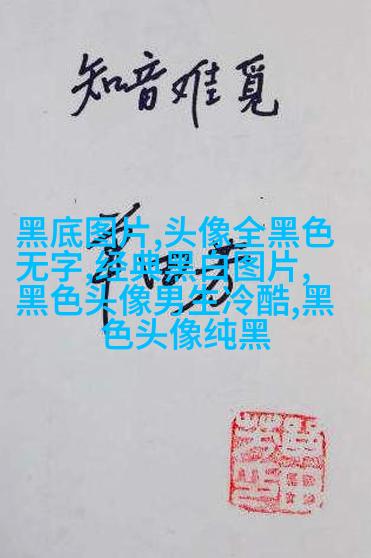 知音难觅
单田芳
黑底图片,头像全黑色
无字,经典黑白图片,
黑色头像男生冷酷,黑
色头像纯黑